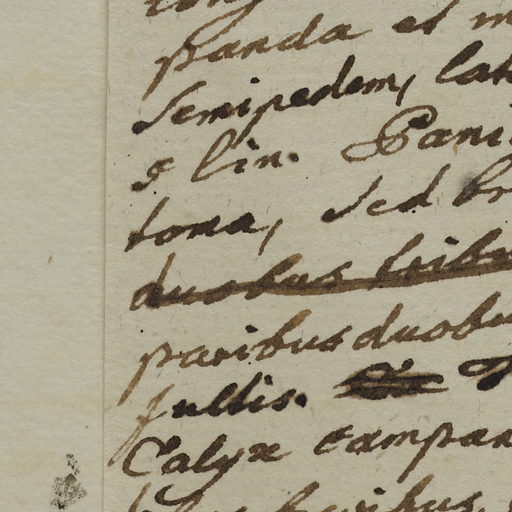 panda et
semipedem, lat
5 lin. Pani
toma, sed br
duobus tribu
paribus duobu
fultis.
Calyx campan